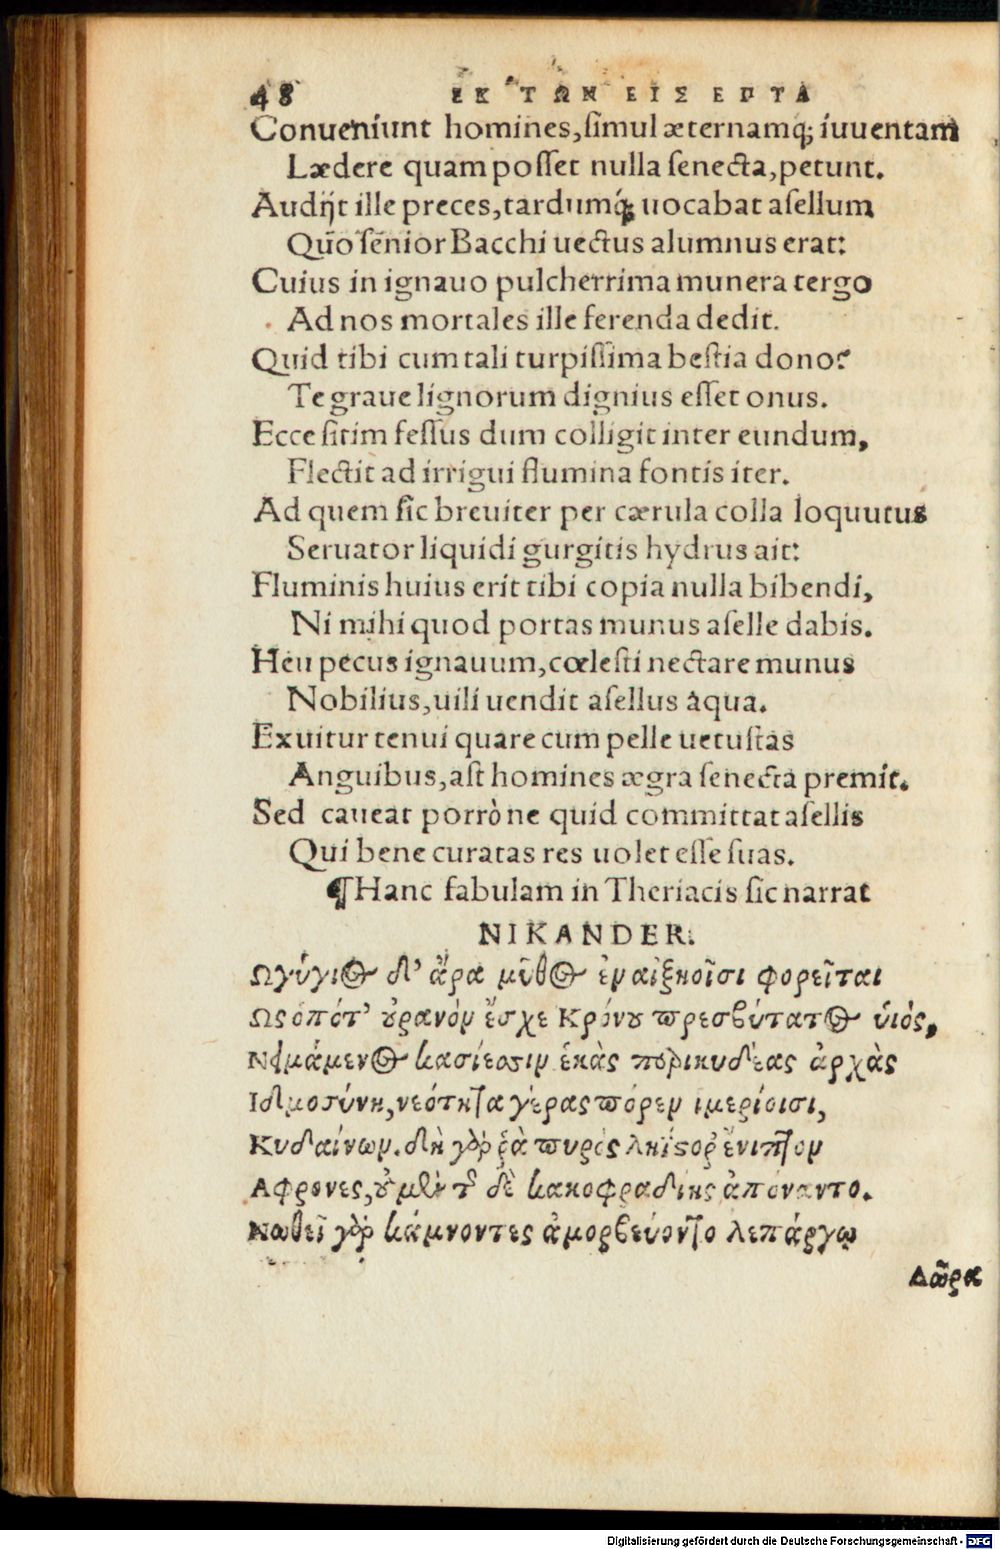 48 ΕΚ ΤΩΝ ΕΙΣ ΕΠΤΑ
Conueniunt homines, ſimul æternamq; iuuentam
Lædere quam poſſet nulla ſenecta, petunt.
Audijt ille preces, tardumq́; uocabat aſellum
Quo ſenior Bacchi uectus alumnus erat:
Cuius in ignauo pulcherrima munera tergo
Ad nos mortales ille ferenda dedit.
Quid tibi cum tali turpiſſima beſtia dono?
Te graue lignorum dignius eſſet onus.
Ecce ſitim feſſus dum colligit inter eundum,
Flectit ad irrigui flumina fontis iter.
Ad quem ſic breuiter per cærula colla loquutus
Seruator liquidi gurgitis hydrus ait:
Fluminis huius erit tibi copia nulla bibendi,
Ni mihi quod portas munus aſelle dabis.
Heu pecus ignauum, cœleſti nectare munus
Nobilius, uili uendit aſellus aqua.
Exuitur tenui quare cum pelle uetuſtas
Anguibus, aſt homines ægra ſenecta premit.
Sed caueat porrò ne quid committat aſellis
Qui bene curatas res uolet eſſe ſuas.
¶ Hanc fabulam in Theriacis ſic narrat
NIKANDER.
Ωγύγιος δ' ἄρα μῦθος ἐν αἰζηοῖσι φορεῖται
Ως ὁπότ' οὐρανὸν ἔσχε Κρόνου πρεσβύτατος υἱός,
Νειμάμενος κασίεσσιν ἑκὰς περικυδέας ἀρχὰς
Ιδμοσύνη, νεότητα γέρας πόρεν ἡμερίοισι,
Κυδαίνων. δὴ γὰρ ῥὰ πυρὸς ληΐστορ' ἔνιπτον
Αφρονες, οὐ μὲν τῆς δὲ κακοφραδίης ἀπόναντο.
Νωθεῖ γὰρ κάμνοντες ἀμορβεύοντο λεπάργῳ
Δῶρα
Digitalisierung gefördert durch die Deutsche Forschungsgemeinschaft - DFG